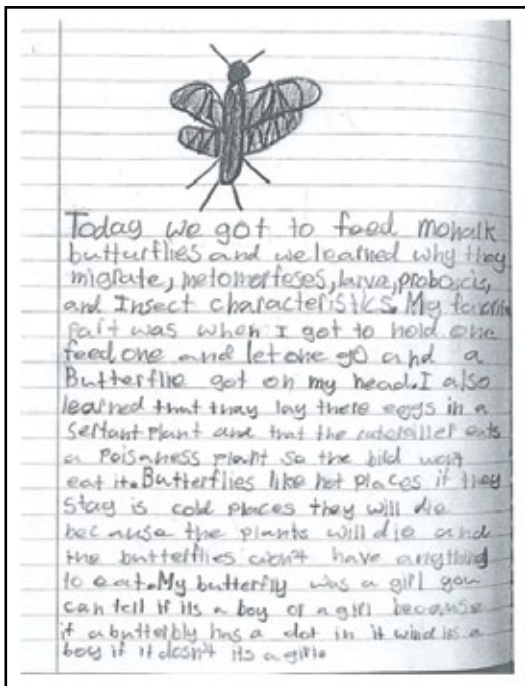 Today we got to feed Monalk
butturflies and we learned why they
migrate, metomorfeses, larva, proboscis,
and Insect characteristics. My favorite
part was when I got to hold one
feed one and let one go and a
Butterflie got on my head. I also
learned that thay lay there eggs in a
sertant plant and that the eats
a Poisaness plant so the bild wont
eat it. Butterflies like hot places if they
stay is cold places they will die
because the plants will die and
the butterflies won't have anything
to eat. My butterfly was a girl you
can tell if its a boy or a girl because
if a butterbly has a dot in it wind its a
boy if it dosn't its a girl.